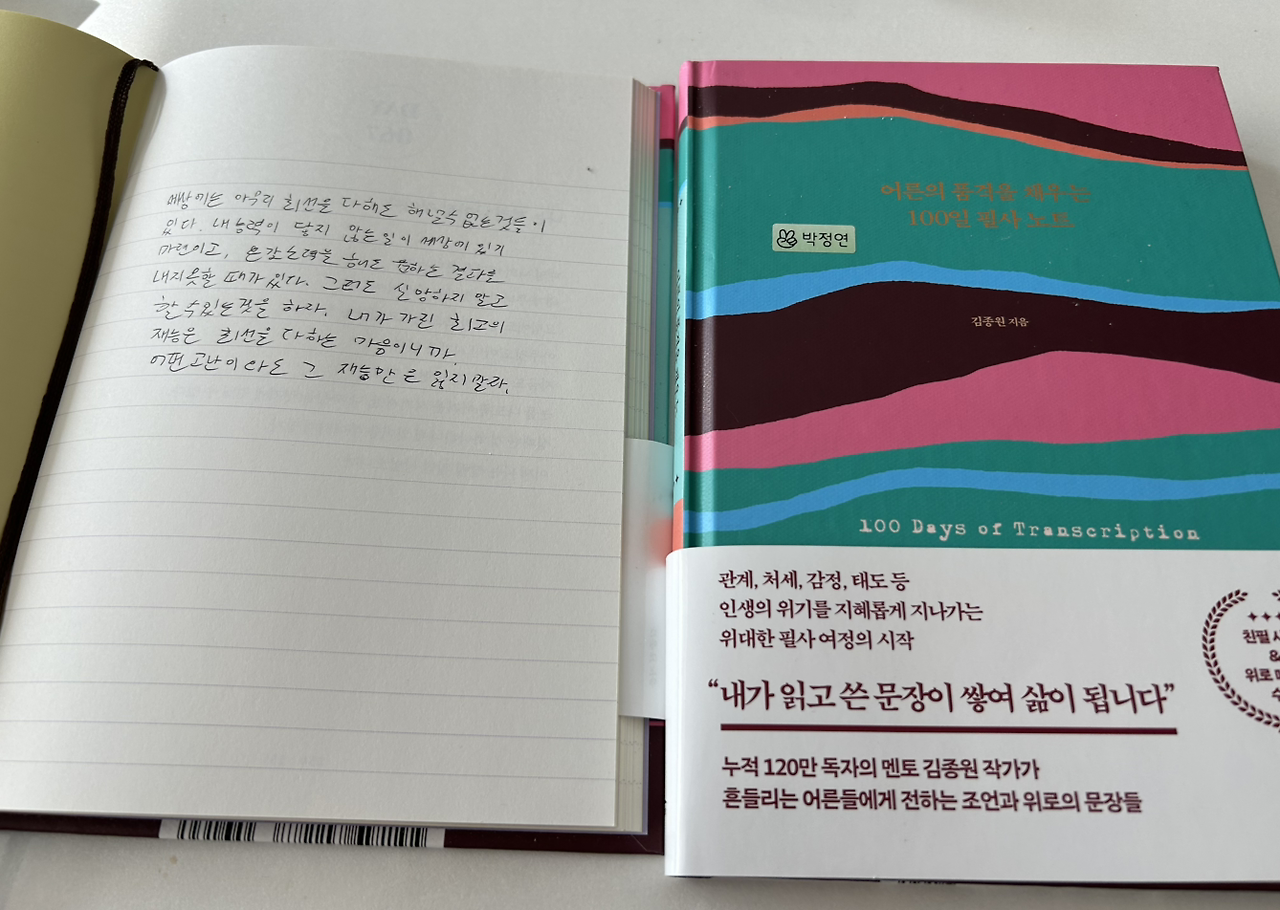 세상에는 아무리 최선을 다해도 해낼수 없는것들이
있다. 내 능력이 닿지 않는 일이 세상에 있기
마련이고, 온갖 노력을 해도 원하는 결과를
내지 못할 때가 있다. 그래도 실망하지 말고
할 수 있는 것을 하라. 내가 가진 최고의
재능은 최선을 다하는 마음이니까.
어떤 고난이 와도 그 재능만은 잃지 말라.
어른의 품격을 채우는
100일 필사 노트
박정연
김종원 지음
100 Days of Transcription
관계, 처세, 감정, 태도 등
인생의 위기를 지혜롭게 지나가는
위대한 필사 여정의 시작
“내가 읽고 쓴 문장이 쌓여 삶이 됩니다”
누적 120만 독자의 멘토 김종원 작가가
흔들리는 어른들에게 전하는 조언과 위로의 문장들
친필
&
위로